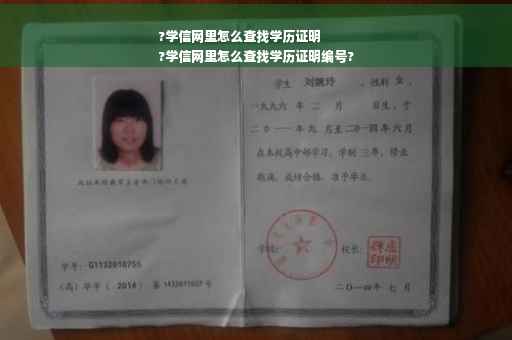 ?学信网里怎么查找学历证明
?学信网里怎么查找学历证明编号?
学生 刘婉玲 ，性别 女 ，
一九九六 年 二 月 日生，于
二〇一一年九 月至二〇一四年六月
在本校高中部学习，学制 三年，修业
期满，成绩合格，准予毕业。
学号：G1132010755
（高）毕字（ 2014 ）第 1432011027 号
学校：
校长：
二〇一四年 七 月